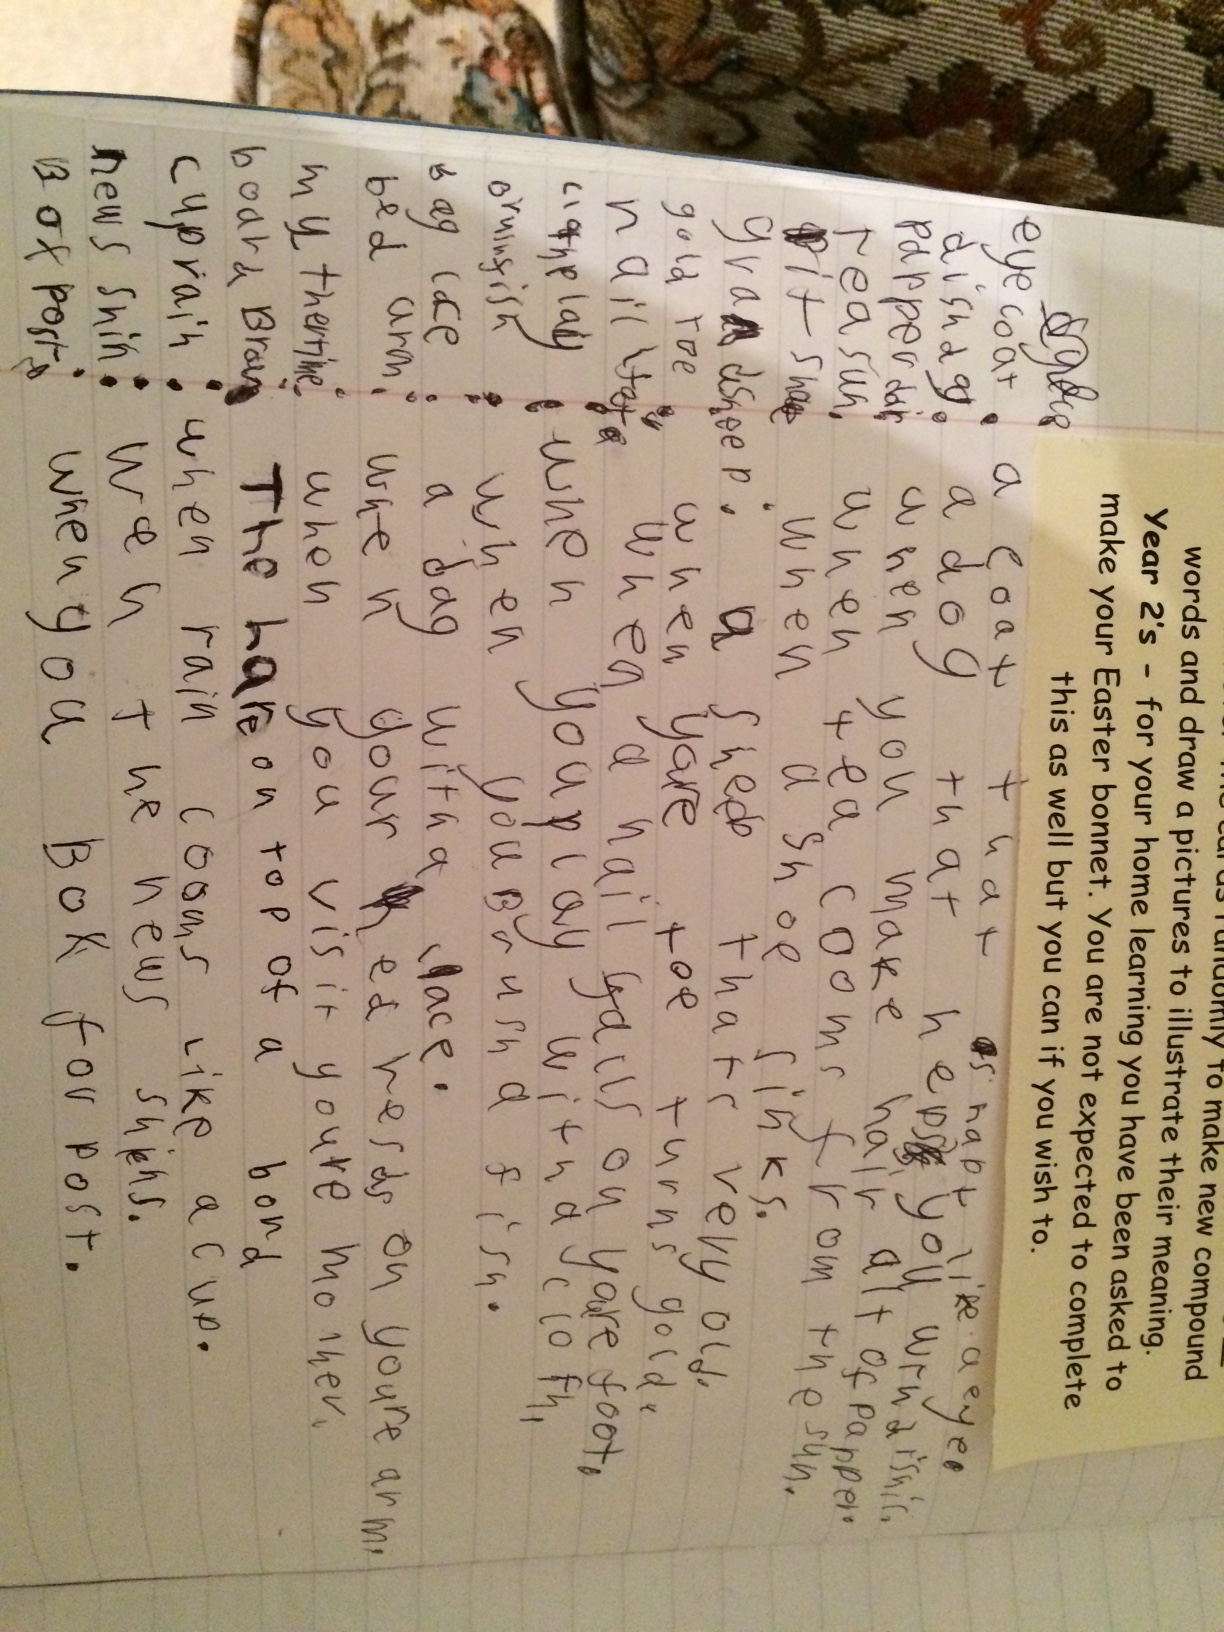 words and draw a pictures to illustrate their meaning.
Year 2's - for your home learning you have been asked to
make your Easter bonnet. You are not expected to complete
this as well but you can if you wish to.
eyecoat: a coat that is hapt like a eye.
dishdog: a dog that heps you
papper: when you make hair alt of papper.
teasun: when tea cooms from the sun.
when a shoe sinks.
a sheep thats very old.
gold toe: when youre toe turns gold.
nail: when a nail on youre foot.
clothplay: when you play with a cloth,
when you Brush a fish.
lace: a bag with a lace.
bed arm: when your hed on youre arm.
when you visit youre mother.
board: The hare on top of a bord
cuprain: when rain cooms like a cup.
news shin: weh the news shins.
Box post: when you Box for post.